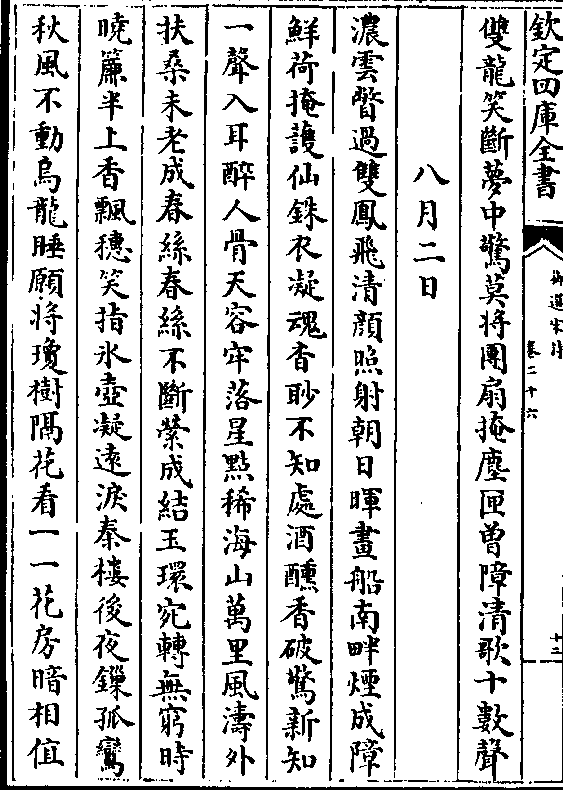 欽定四庫全書
御選宋詩
卷二十六
十二
雙龍笑斷夢中驚莫將團扇掩塵匣曾障清歌十數聲
八月二日
濃雲瞥過雙鳳飛清顔照射朝日暉畫船南畔煙成障
鮮荷掩護仙銖衣凝魂杳眇不知處酒醺香破驚新知
一聲入耳醉人骨天容牢落星點稀海山萬里風濤外
扶桑未老成春絲春絲不斷縈成結玉環宛轉無窮時
曉簾半上香飄穗笑指氷壺凝遠淚秦樓後夜鏁孤鸞
秋風不動烏龍睡願將瓊樹隔花看一一花房暗相值